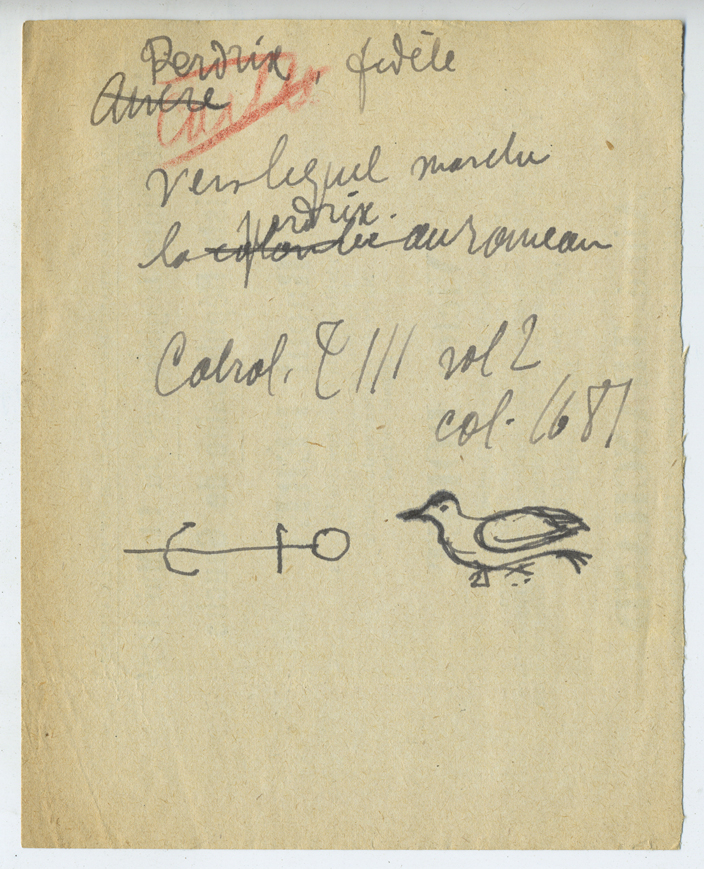 Perdrix, fidèle
Ancre
vers lequel marche
perdrix.
la colombe au rameau
Cabrol. T III vol 2
col. 1681